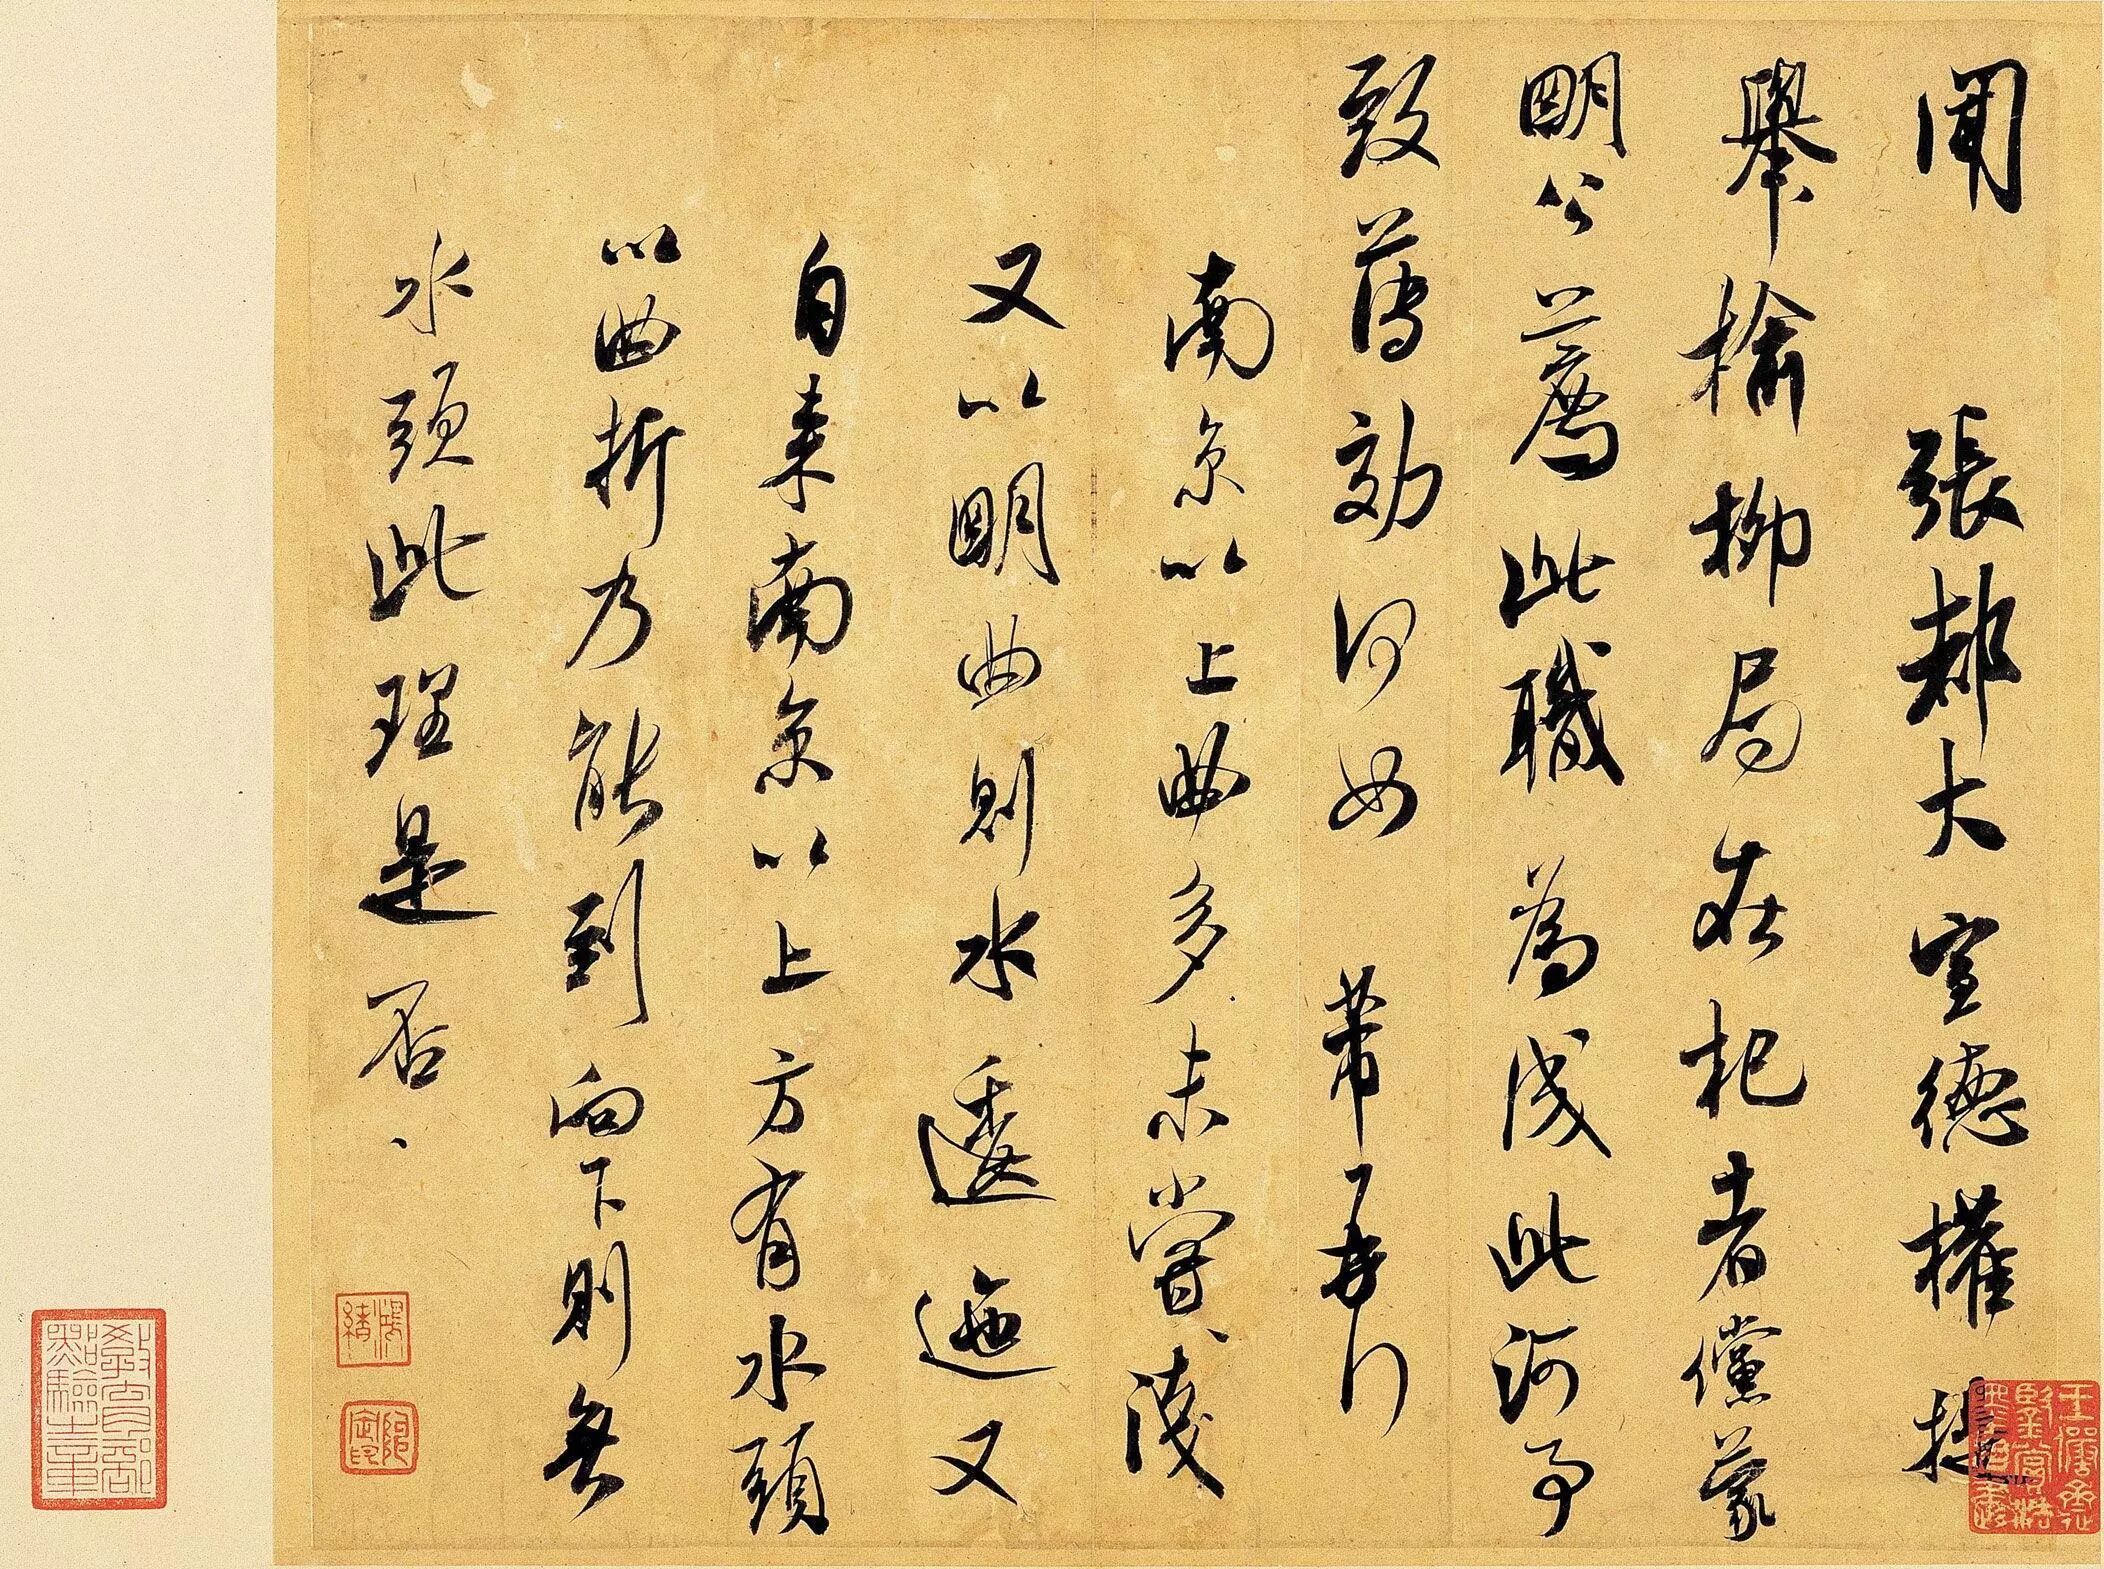 聞張都大宣德權提
舉榆柳局在杞者儻蒙
明公薦此職為成此河事
致薄效何如芾再行
南京以上曲多未嘗淺
又以明曲則水逶迤又
自來南京以上方有水頭
以曲折乃能到向下則無
水頭此理是否